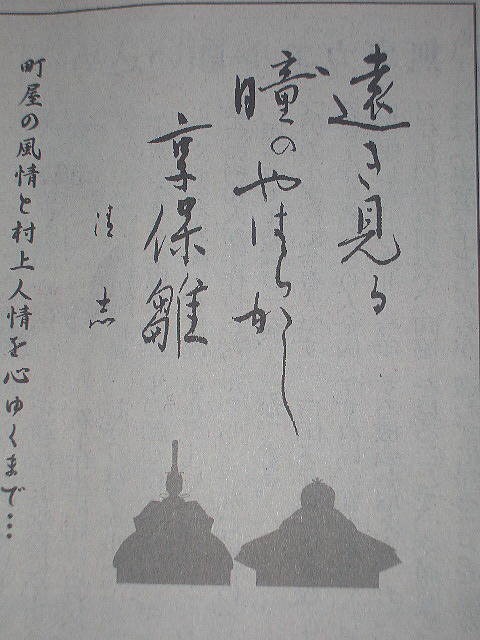 遠き見る
瞳のやはらかし
享保雛
清志
町屋の風情と村上人情を心ゆくまで…